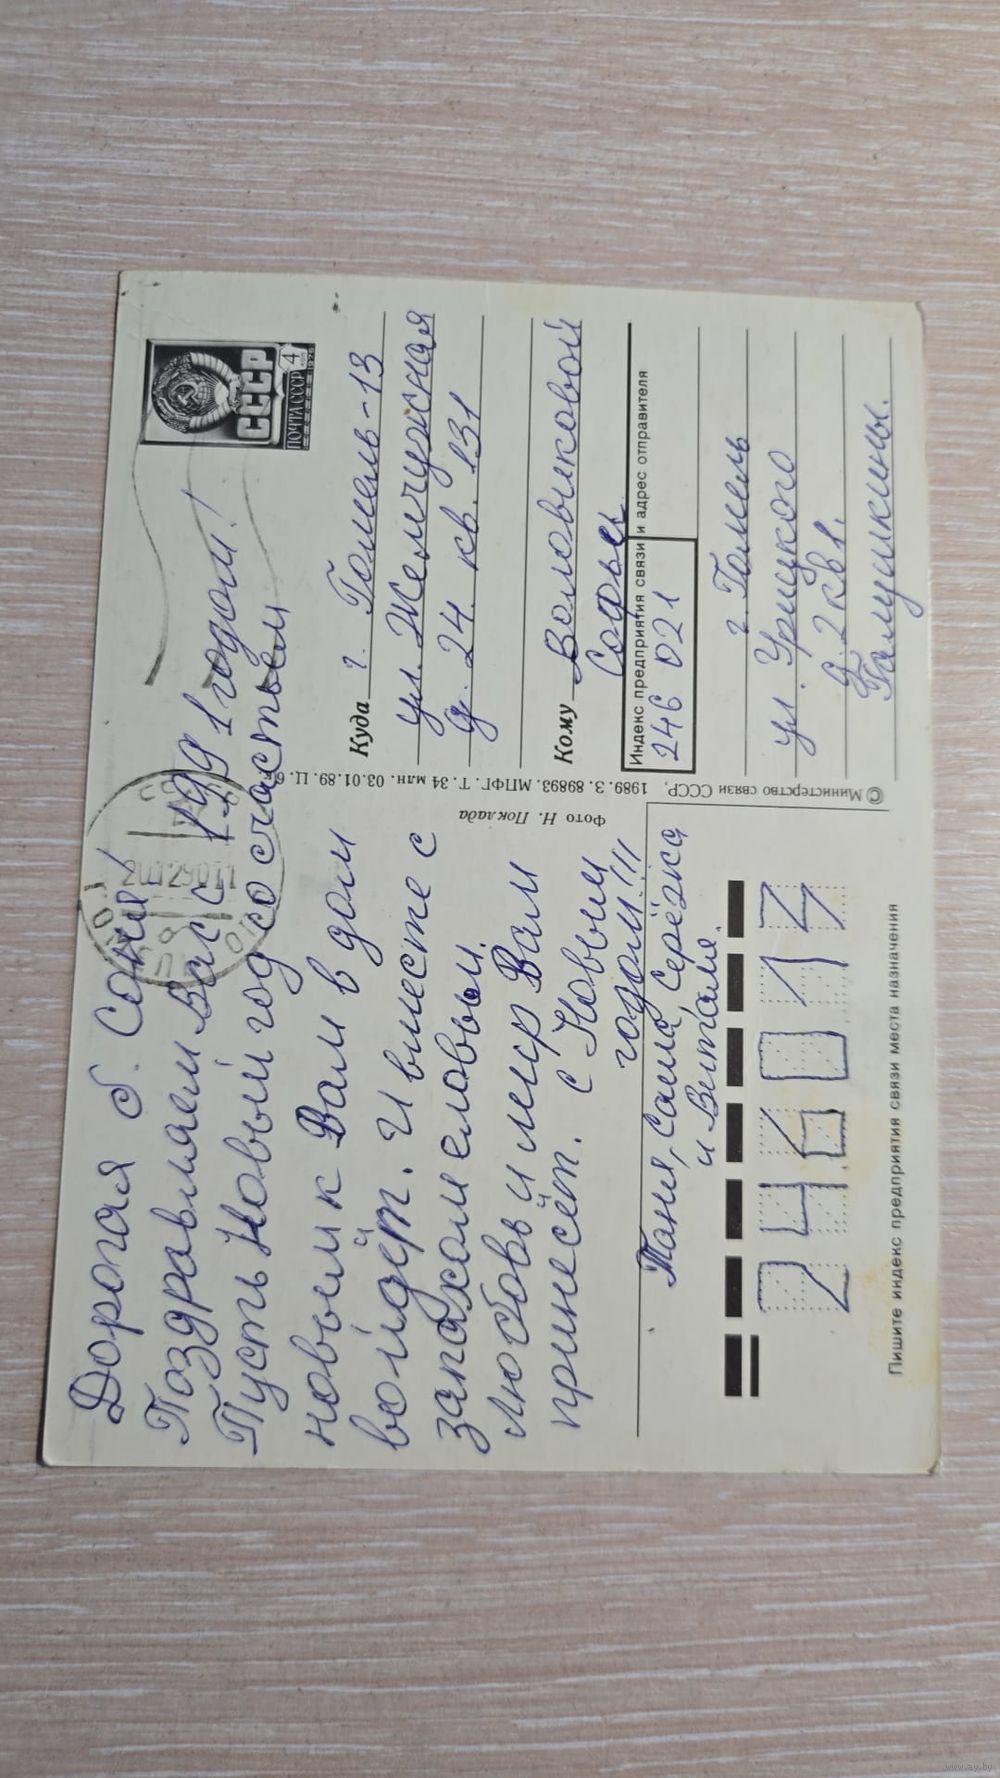 Дорогая б. Соня!
Поздравляем Вас с 1991 годом!
Пусть Новый год со счастьем
новым к Вам в дом
войдёт. И вместе с
запахом еловым
Любовь и мир Вам
принесёт. С Новым
годом!!!
Таня, Саша, Серёжка
и Виталя.
246013
Пишите индекс предприятия связи места назначения
Фото Н. Поклада
© Министерство связи СССР, 1989. З. 89893. МПФГ. Т. 34 млн. 03.01.89. Ц. 6
СССР
ПОЧТА СССР 4
Куда г. Гомель-13
ул. Жемчужная
д. 24 кв. 131
Кому Воловиковой
Софье
Индекс предприятия связи и адрес отправителя
246 021
г. Гомель
ул. Урицкого
д. 2 кв 1.
Галушкины.
www.ay.by